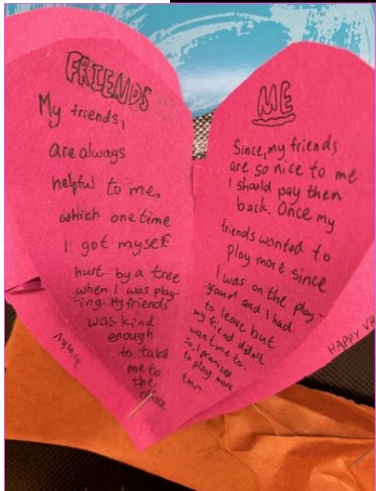 FRIENDS
My friends,
are always
helpful to me,
which one time
I got myself
hurt by a tree
when I was play-
ing. My friends
was kind
enough
to take
me to
the
office
ME
Since, my friends
are so nice to me
I should pay then
back. Once my
friends wanted to
play more since
I was on the play-
ground and I had
to leave but
my friend didn't
want me to.
So, I promised
to play more
tmr.
HAPPY